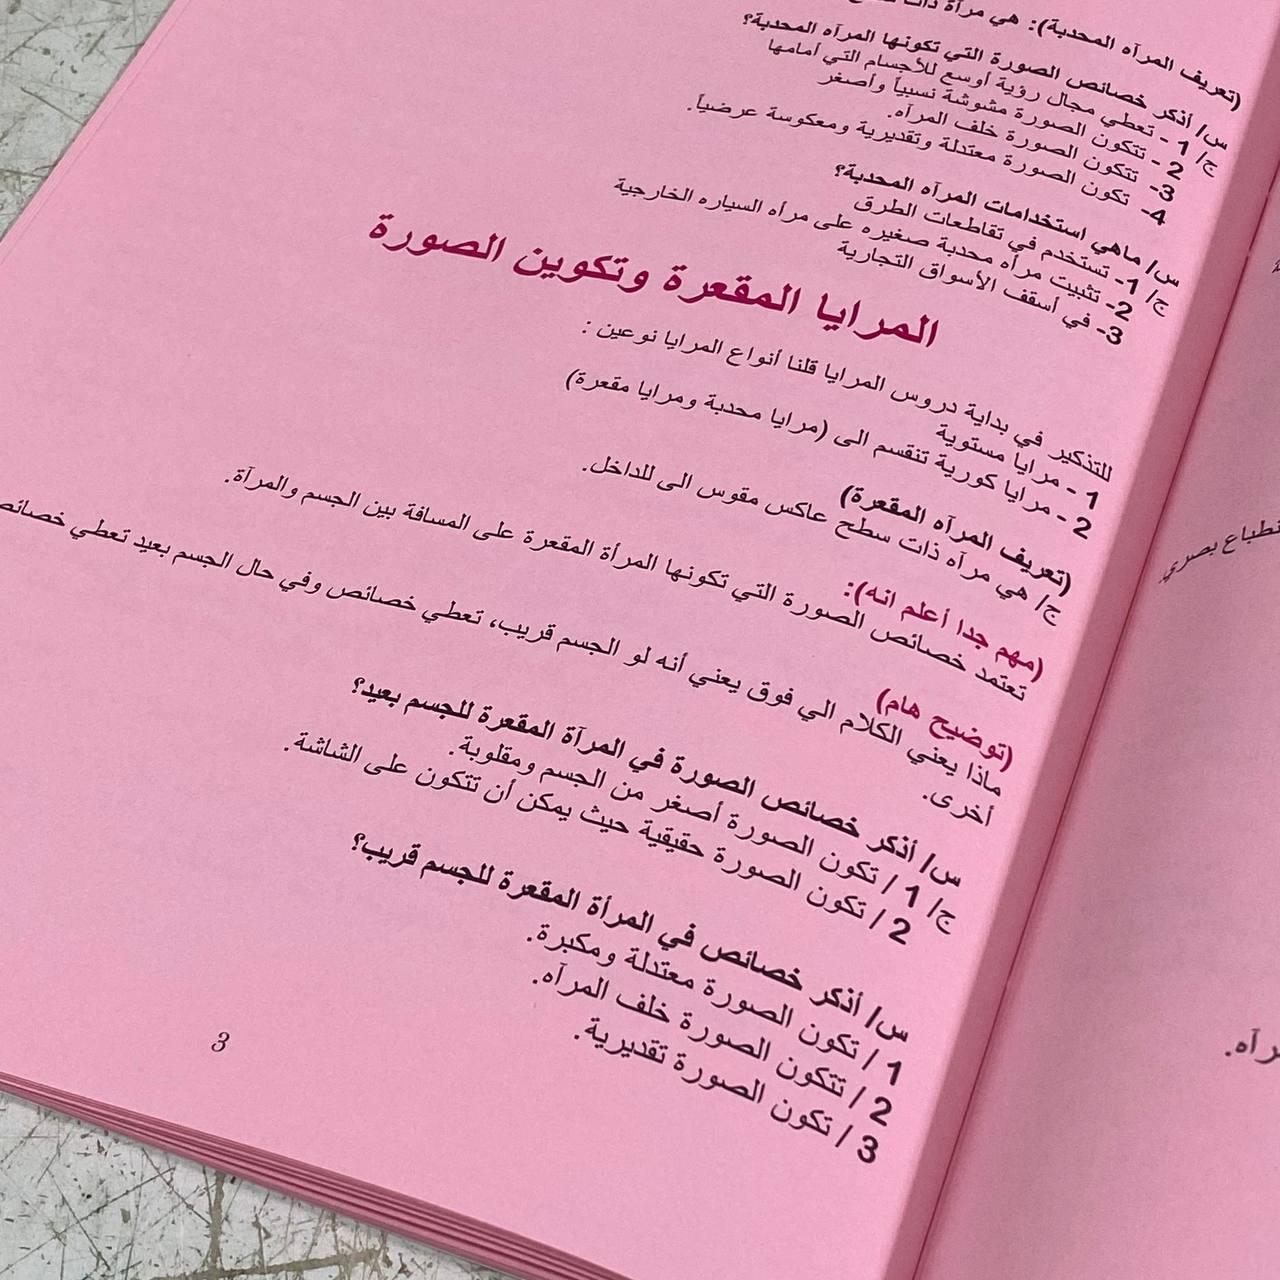 (تعريف المرآه المحدبة): هي مرآة ذات
س/ أذكر خصائص الصورة التي تكونها المرآه المحدبة؟
ج/ 1 - تعطي مجال رؤية أوسع للأجسام التي أمامها
2 - تتكون الصورة مشوشة نسبياً وأصغر
3- تتكون الصورة خلف المرآه.
4- تكون الصورة معتدلة وتقديرية ومعكوسة عرضياً.
س/ ماهي استخدامات المرآه المحدبة؟
ج/ 1- تستخدم في تقاطعات الطرق
2- تثبيت مرأه محدبة صغيره على مرأه السياره الخارجية
3- في أسقف الأسواق التجارية
المرايا المقعرة وتكوين الصورة
للتذكير في بداية دروس المرايا قلنا أنواع المرايا نوعين :
1 - مرايا مستوية
2 - مرايا كورية تنقسم الى (مرايا محدبة ومرايا مقعرة)
(تعريف المرآه المقعرة)
ج/ هي مرآه ذات سطح عاكس مقوس الى للداخل.
(مهم جدا أعلم انه):
تعتمد خصائص الصورة التي تكونها المرأة المقعرة على المسافة بين الجسم والمرآة.
(توضيح هام)
ماذا يعني الكلام الي فوق يعني أنه لو الجسم قريب، تعطي خصائص وفي حال الجسم بعيد تعطي خصائص
أخرى.
س/ أذكر خصائص الصورة في المرآة المقعرة للجسم بعيد؟
ج/ 1 / تكون الصورة أصغر من الجسم ومقلوبة.
2 / تكون الصورة حقيقية حيث يمكن أن تتكون على الشاشة.
س/ أذكر خصائص في المرأة المقعرة للجسم قريب؟
1 / تكون الصورة معتدلة ومكبرة.
2 / تتكون الصورة خلف المرآه.
3 / تكون الصورة تقديرية.
3
بصري.